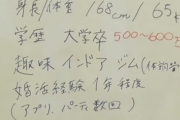 身長/体重 168cm/65k
学歴 大学卒 500~600万
趣味 インドア ジム(体
婚活経験 1年程度
(アプリ、パーティ数回)